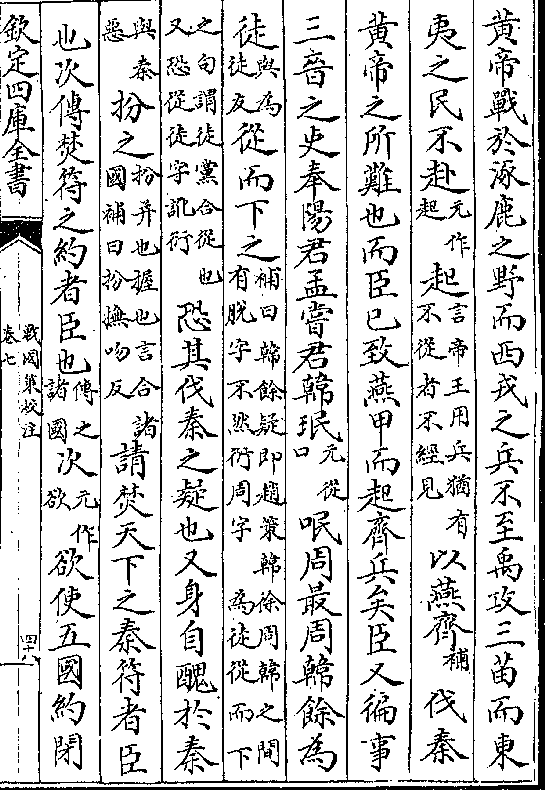 黄帝戰於涿鹿之野而西戎之兵不至禹攻三苗而東
夷之民不赴元作起起言帝王用兵猶有不從者不經見以燕齊補伐秦
黄帝之所難也而臣已致燕甲而起齊兵矣臣又徧事
三晉之吏奉陽君孟嘗君韓珉元從口呡周最周韓餘為
徒徒與為反從而下之補曰韓餘疑即趙策韓徐周韓之間有脱字不然衍周字為徒從而下
之句謂徒黨合從也又恐從徒字訛衍恐其伐秦之疑也又身自醜於秦
與秦惡扮之扮并也握也言合諸國補曰扮撫吻反請焚天下之秦符者臣
也次傳焚符之約者臣也傳之諸國次元作欲欲使五國約閉
欽定四庫全書
戰國策校注
卷七
四十八